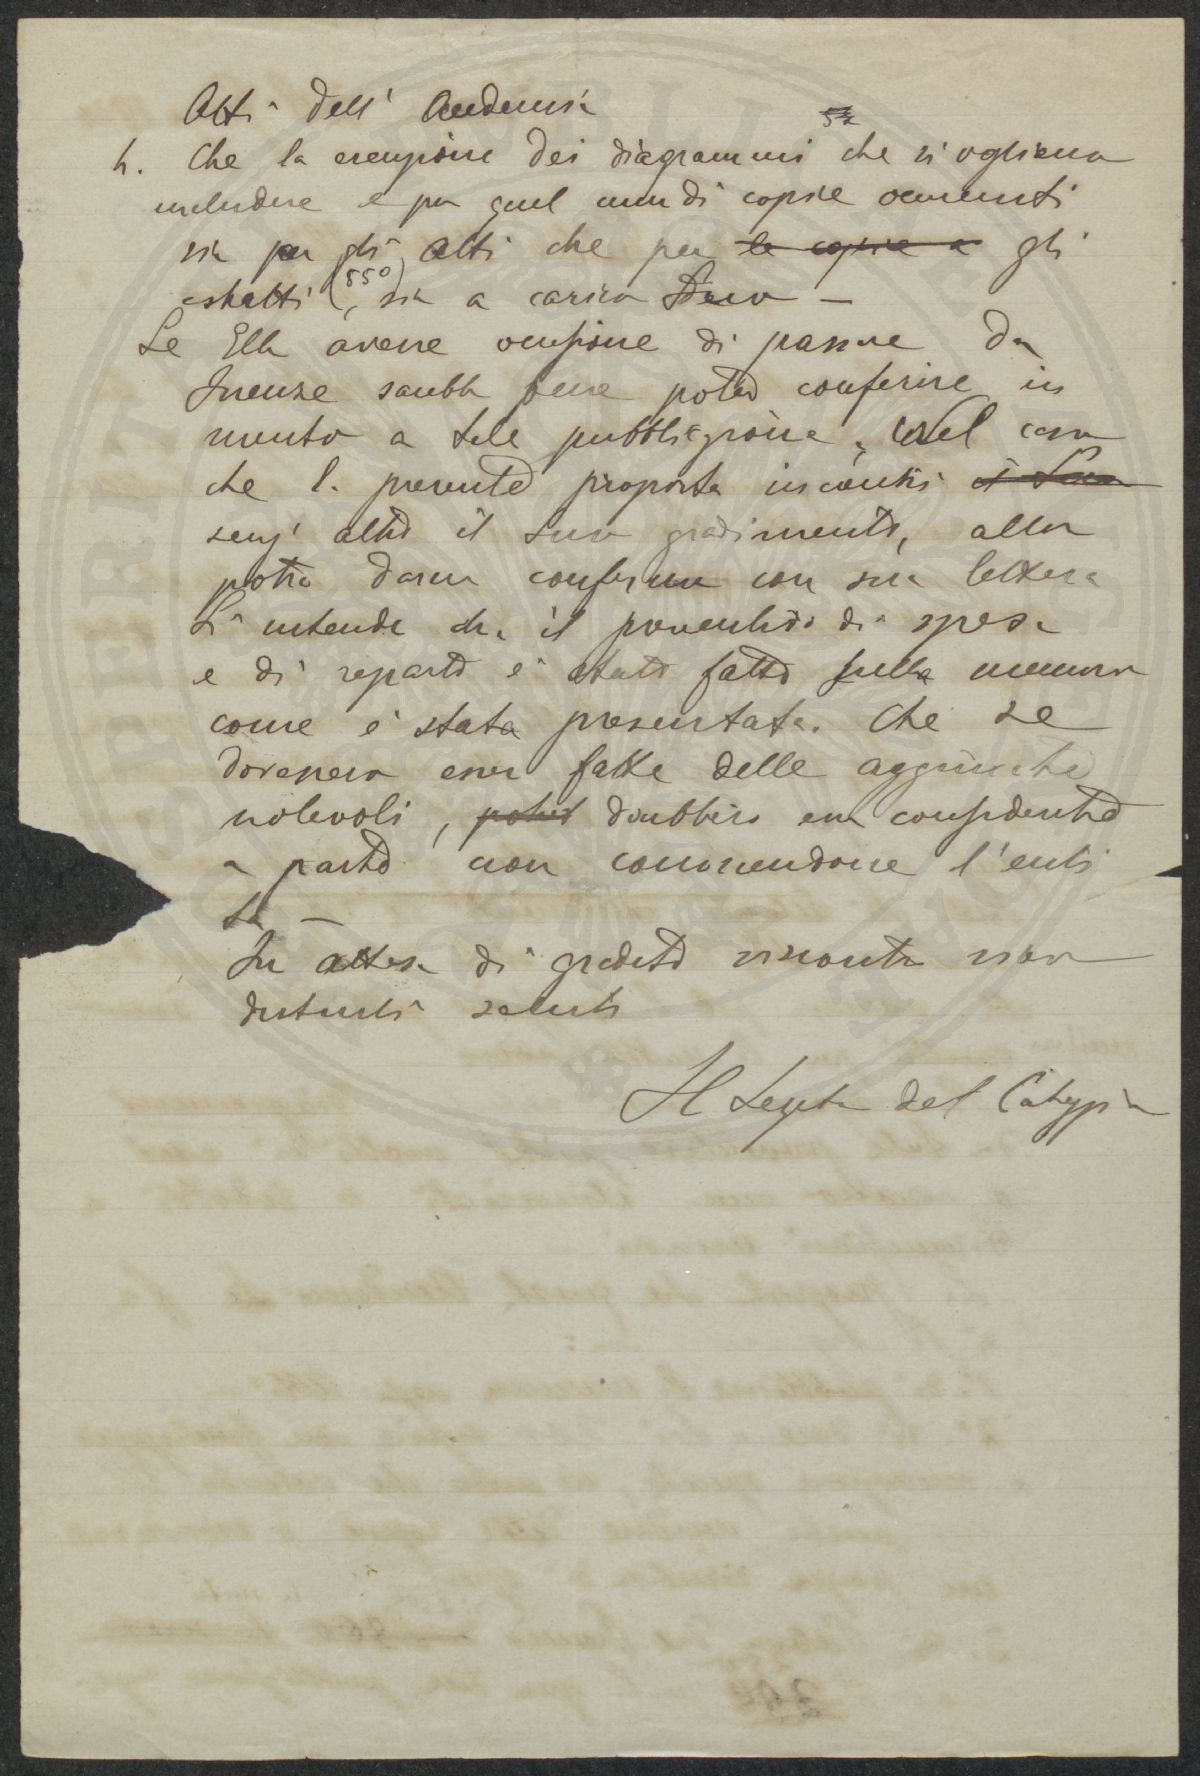 Atti dell' Accademia
4. Che la esecuzione dei diagrammi che si vogliono
includere e per quel num di copie occorrenti
sia per gli Atti che per le copie a gli
estratti (550), sia a carico Suo —
Se Ella avesse occasione di passare da
Firenze sarebbe bene poter conferire in
merito a tale pubblicazione. Nel caso
che la presente proposta incontri il Suo
senz' altro il suo gradimento, allora
potrà darne conferma con sua lettera
Si intende che il preventivo di spesa
e di reparto è stato fatto sulla memoria
come è stata presentata. Che se
dovessero esser fatte delle aggiunte
notevoli, dovrebbero esser considerate
a parte non conoscendone l'enti
tà —
In attesa di gradito riscontro
distinti saluti
Il Segret del Collegio